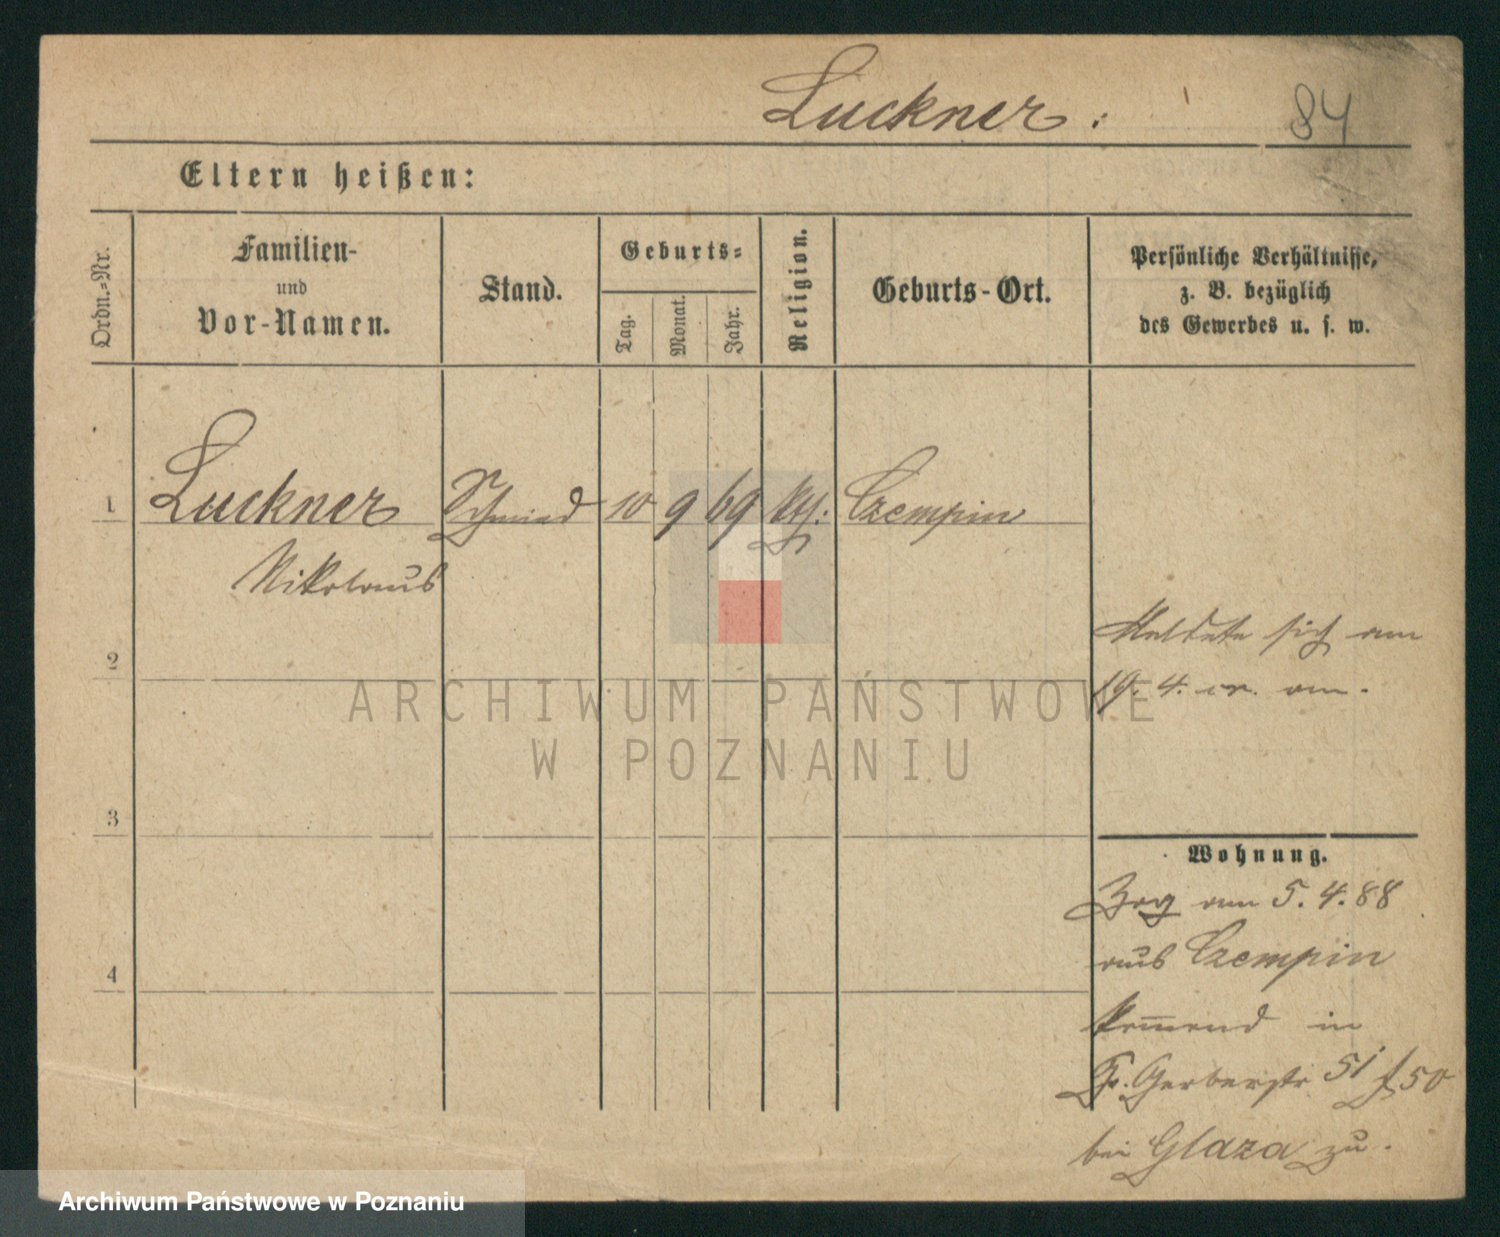 Luckner.
84
Eltern heißen:
Ordn.-Nr.
Familien-
und
Vor-Namen.
Stand.
Geburts-
Tag.
Monat.
Jahr.
Religion.
Geburts-Ort.
Persönliche Verhältnisse,
z. B. bezüglich
des Gewerbes u. s. w.
1 Luckner Schmied 10 9 69 kth. Czempin
Nikolaus
Meldete sich am
19. 4. cr. an.
2
3
4
Wohnung.
Zog am 5. 4. 88
aus Czempin
kommend in
Gr. Gerberstr. 51
50
bei Glaza zu.
ARCHIWUM PAŃSTWOWE
W POZNANIU
Archiwum Państwowe w Poznaniu